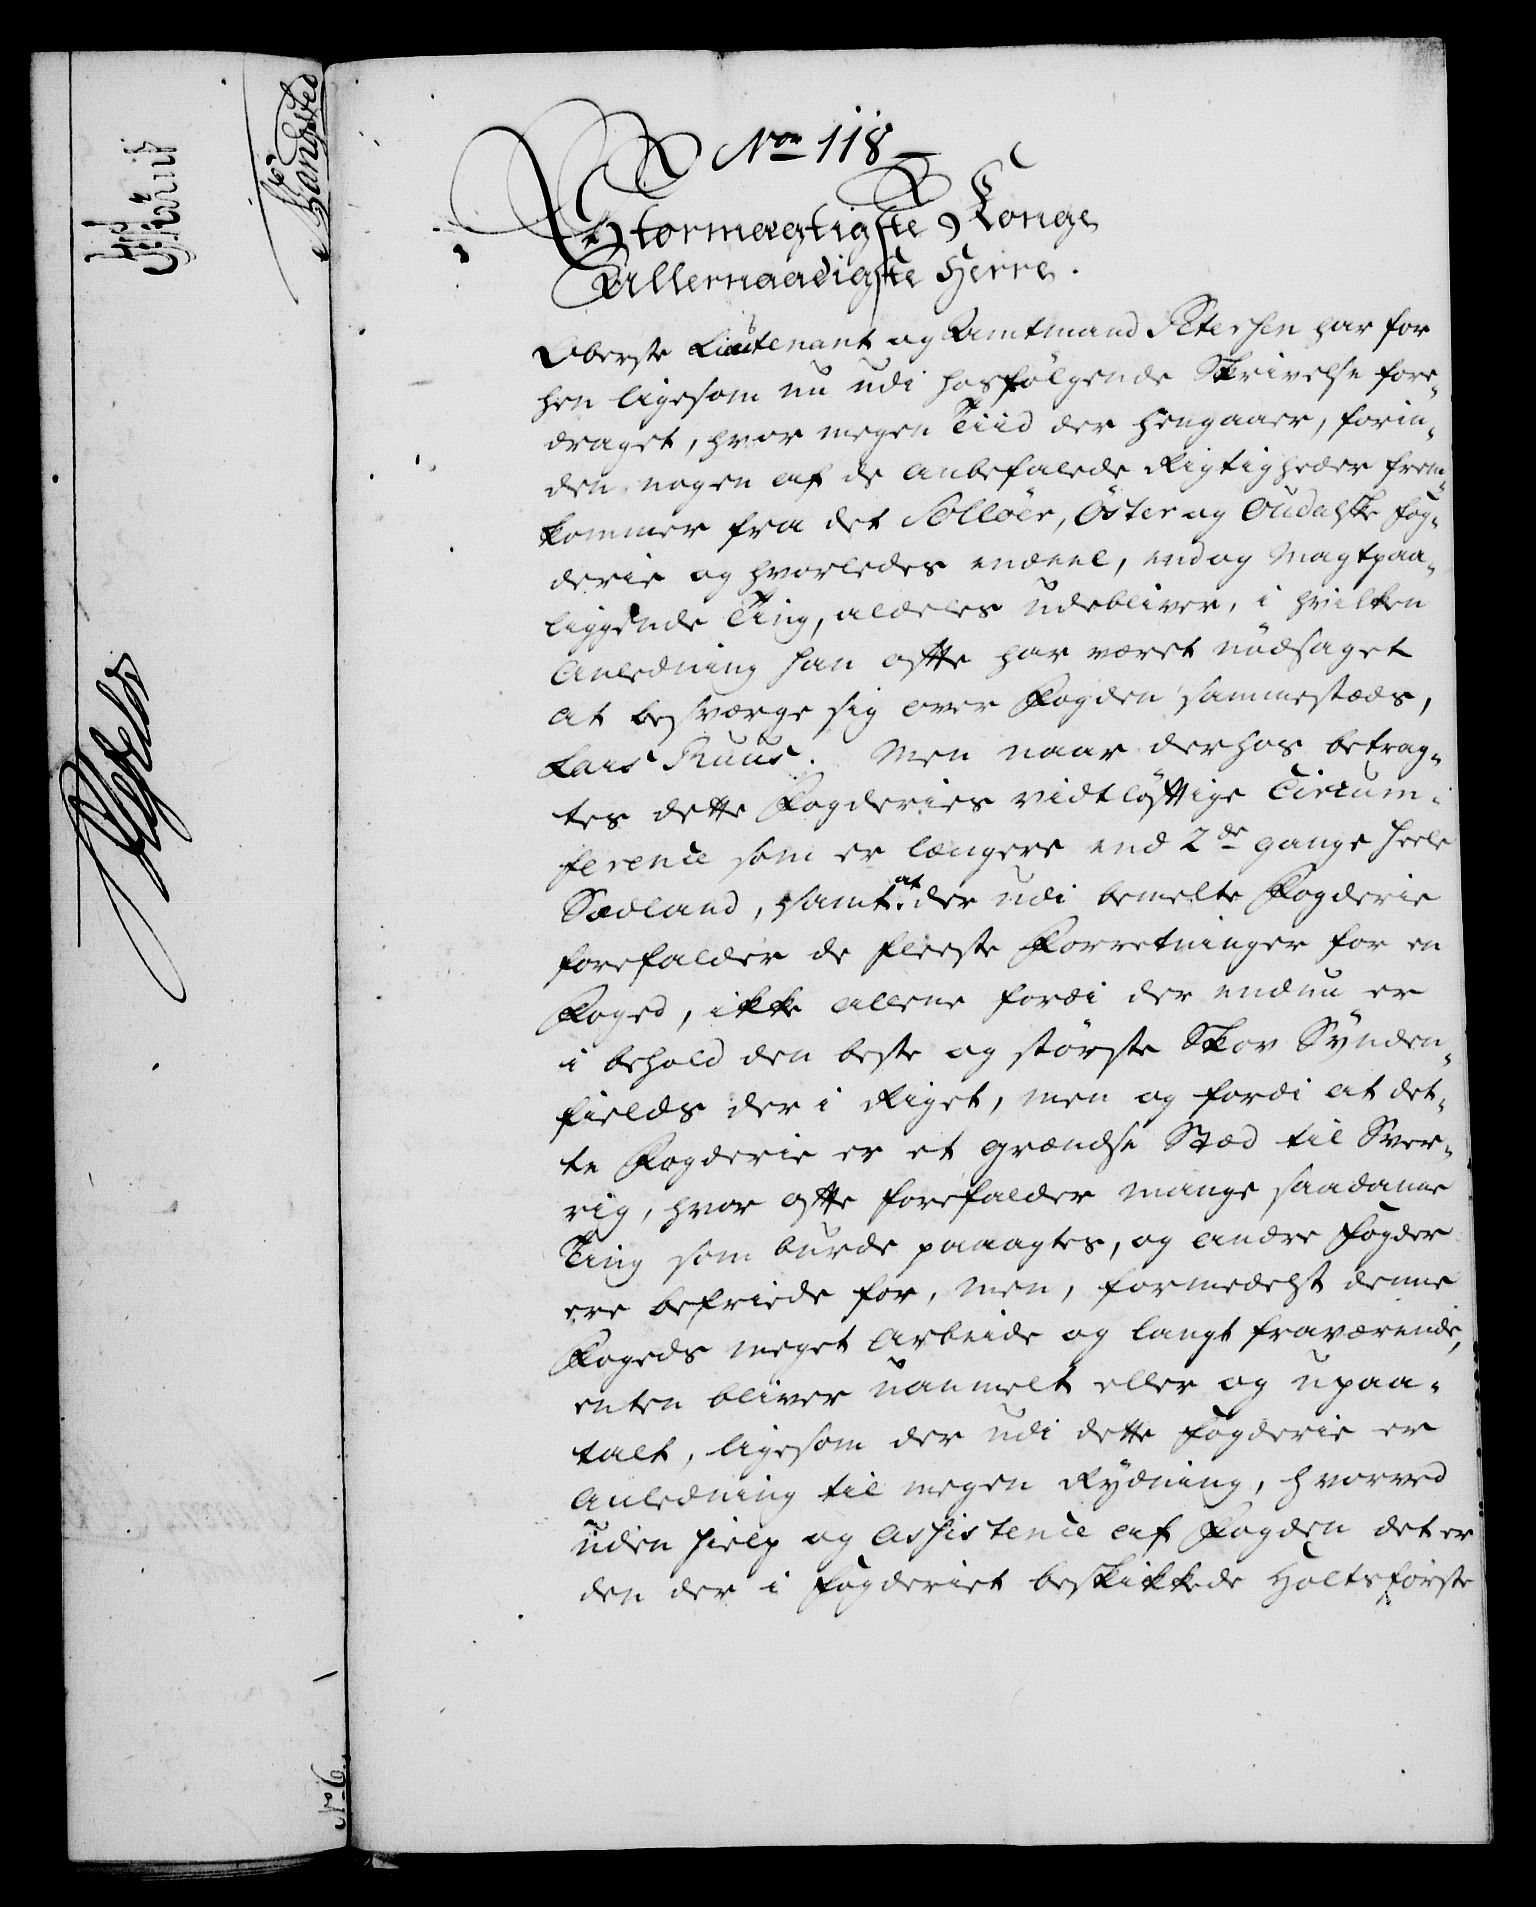 Noe 118
Stormægtigste Konge
Allernaadigste Herre.
Oberste Lieutenant og Amtmand Petersen har for
hen ligesom nu udi hosfölgende Skrivelse fore-
draget, hvor megen Tiid der hengaaer, forin-
den nogen af de anbefalede Rigtigheder frem-
kommer fra det Solløer, Öster og Oudalske Fog-
derie og hvorledes endeel, endog Magtpaa-
liggende Ting, aldeles udebliver, i hvilken
Anledning han ofte har været nödsaget
at besværge sig over Fogden sammestæds,
Lars Ruus. Men naar derhos betrag-
tes dette Fogderies vidtløftige Circum-
ference som er længere end 2de gange heele
Sædland, samt at der udi bemelte Fogderie
forefalder de fleeste Forretninger for en
Foged, ikke allene fordi der endnu er
i behold den beste og störste Skov Synden-
fields der i Riget, men og fordi at det-
te Fogderie er et Grændse Stæd til Sver-
rig, hvor ofte forefalder mange saadanne
Ting som burde paaagtes, og andre Fogder
ere befriede for, men, formedelst denne
Fogeds meget Arbeide og langt fraværende,
enten bliver uanmelt eller og upaa-
talt, ligesom der udi dette Fogderie er
Anledning til megen Rydning, hvorved
uden Hielp og Assistence af Fogden det er
den der i Fogderiet beskikkede Holtsförste
No 6.